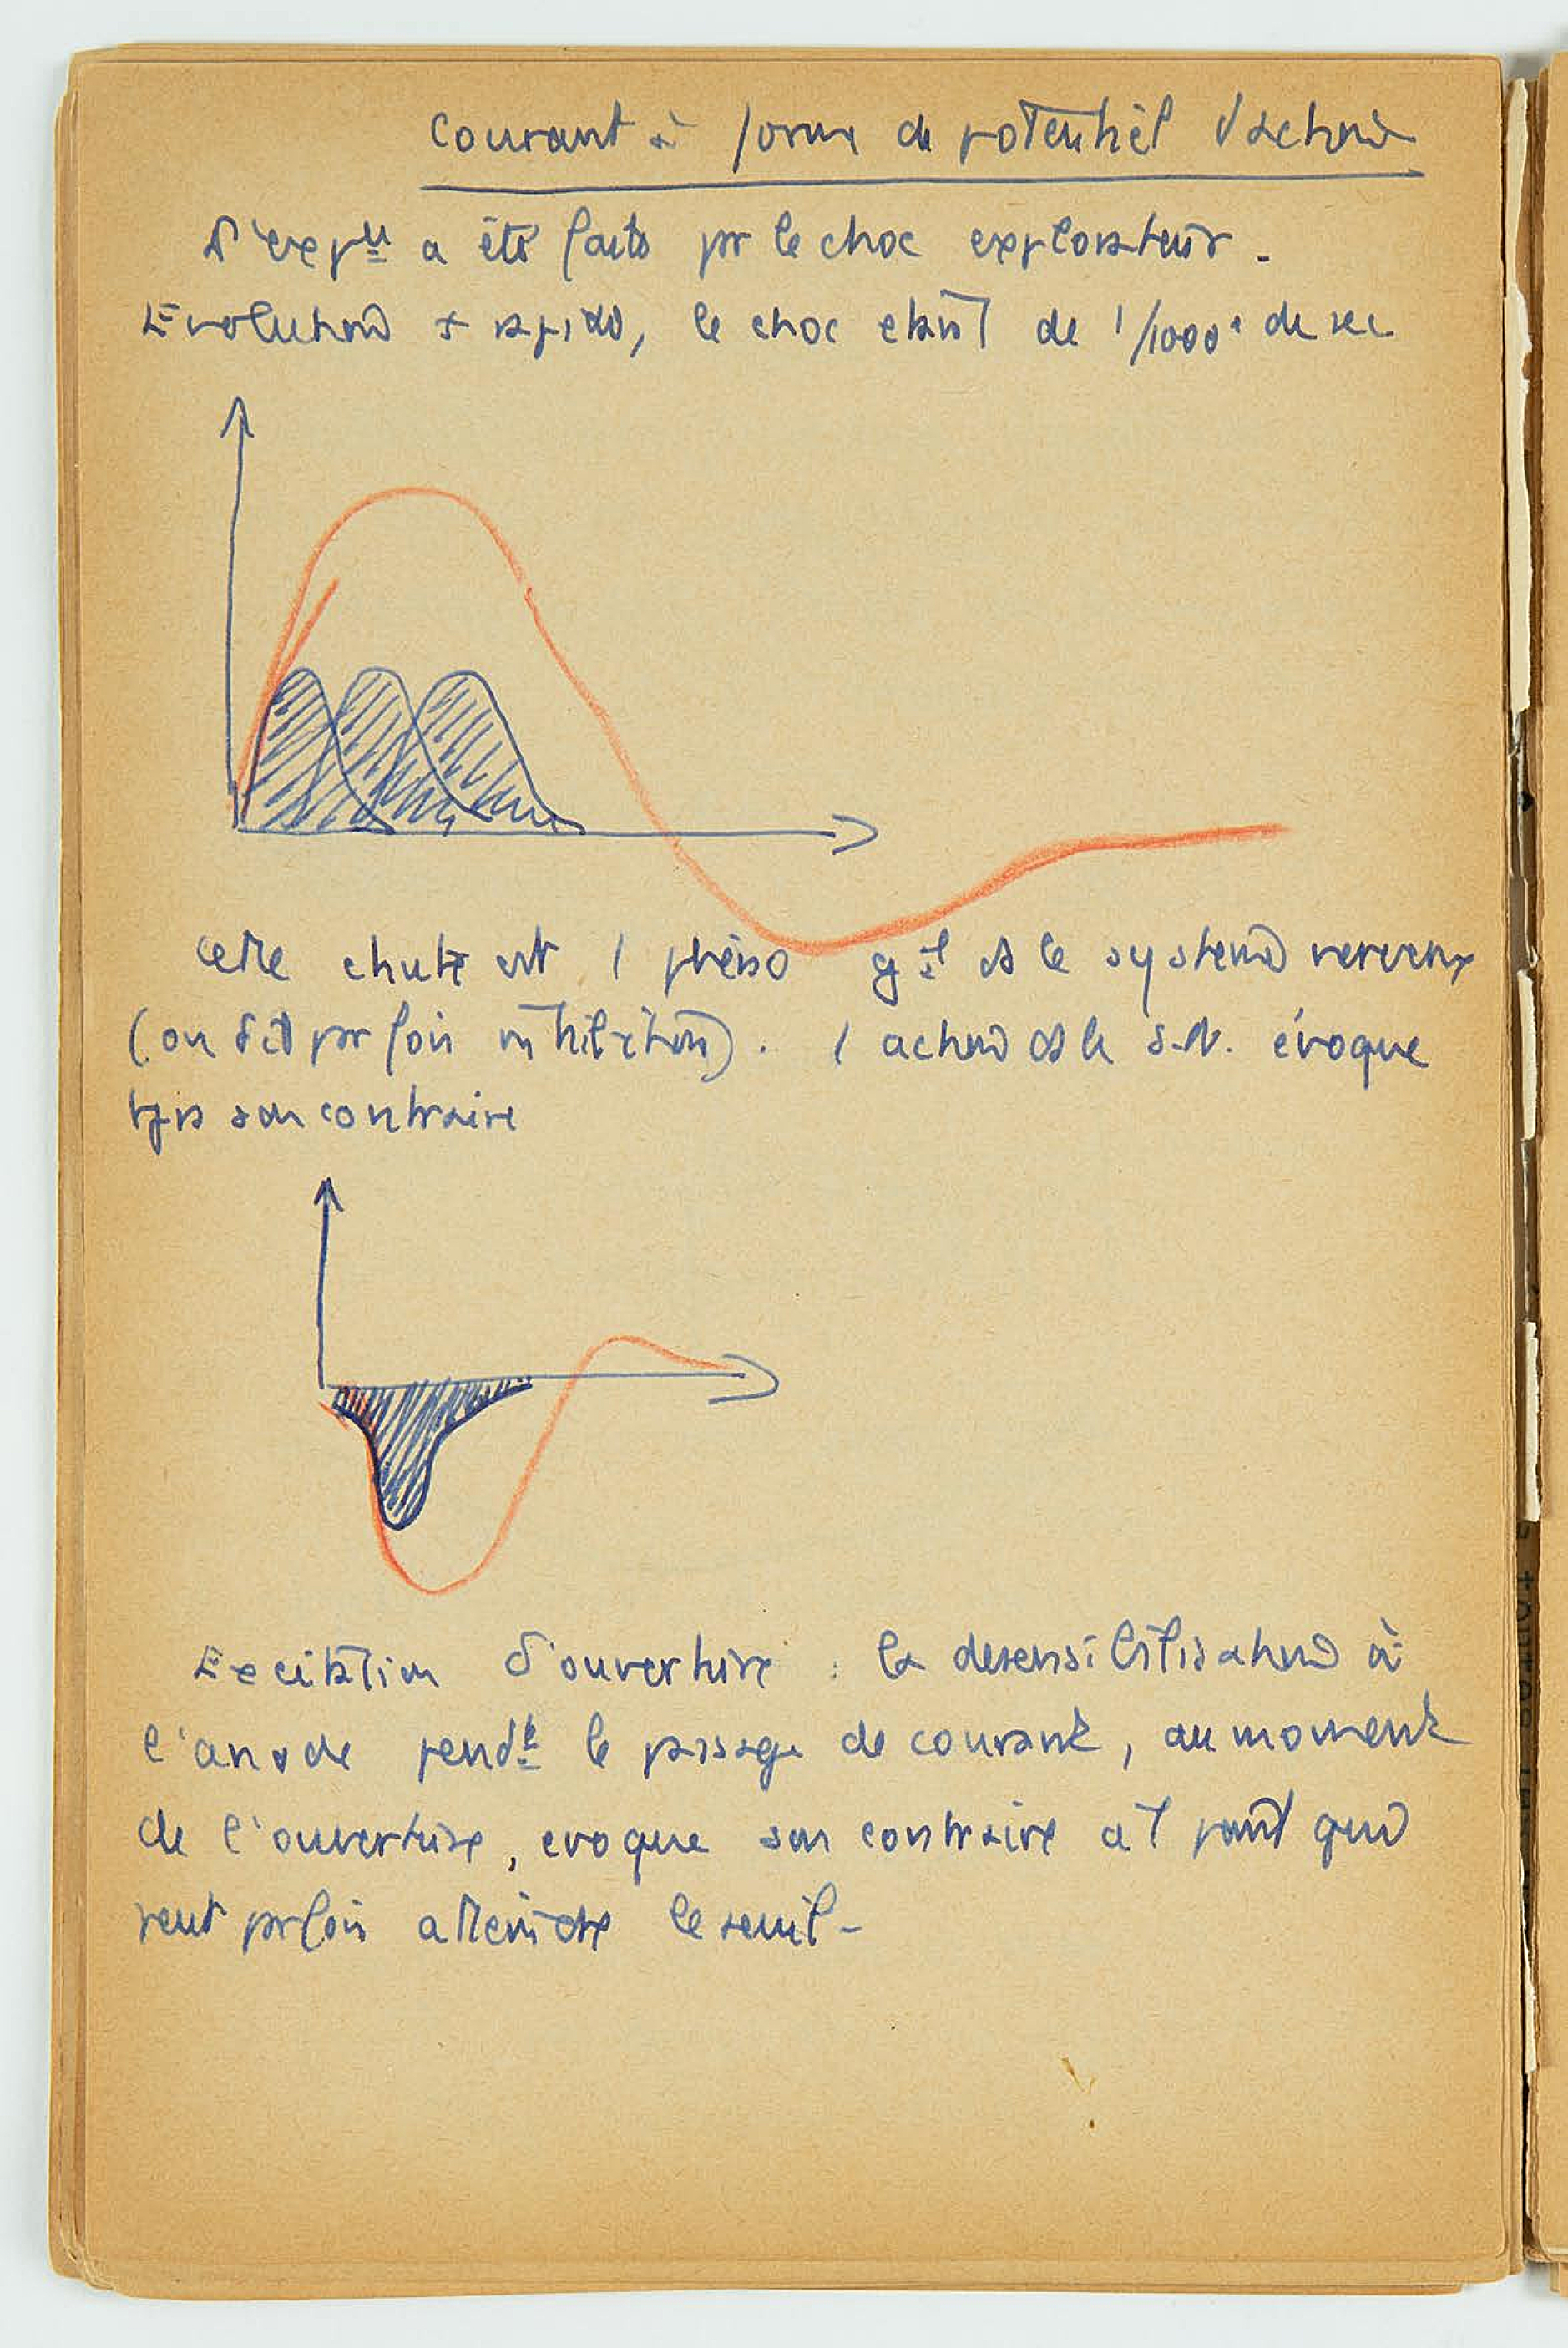 Courant à forme de potentiel d'action
L'exp<sup>ce</sup> a été faite par le choc explorateur.
Evolution + rapide, le choc étant de 1/1000<sup>e</sup> de sec
cette chute est 1 phéno g<sup>al</sup> ds le système nerveux
(on dit parfois inhibition). 1 action ds le S.N. évoque
tjrs son contraire
Excitation d'ouverture : la desensibilisation à
l'anode pend<sup>t</sup> le passage de courant, au moment
de l'ouverture, evoque son contraire a 1 point qui
peut parfois atteindre le seuil -